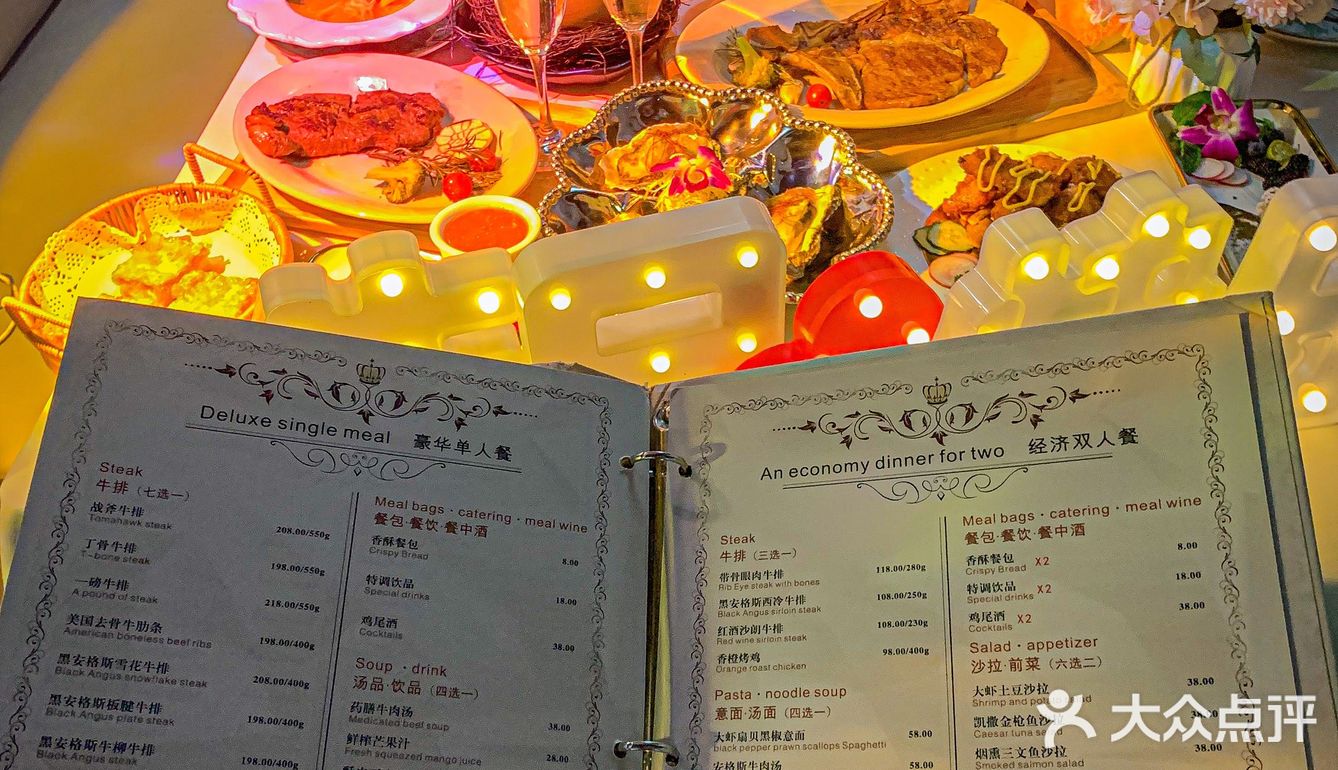 Deluxe single meal 豪华单人餐
Steak
牛排（七选一）
战斧牛排
Tomahawk steak
208.00/550g
丁骨牛排
T-bone steak
198.00/550g
一磅牛排
A pound of steak
218.00/550g
美国去骨牛肋条
American boneless beef ribs
198.00/400g
黑安格斯雪花牛排
Black Angus snowflake steak
208.00/400g
黑安格斯板腱牛排
Black Angus plate steak
198.00/400g
黑安格斯牛柳牛排
198.00/400g
Meal bags · catering · meal wine
餐包·餐饮·餐中酒
香酥餐包
Crispy Bread
8.00
特调饮品
Special drinks
18.00
鸡尾酒
Cocktails
38.00
Soup · drink
汤品·饮品（四选一）
药膳牛肉汤
Medicated beef soup
38.00
鲜榨芒果汁
Fresh squeezed mango juice
28.00
An economy dinner for two 经济双人餐
Steak
牛排（三选一）
带骨眼肉牛排
Rib Eye steak with bones
118.00/280g
黑安格斯西冷牛排
Black Angus sirloin steak
108.00/250g
红酒沙朗牛排
Red wine sirloin steak
108.00/230g
香橙烤鸡
Orange roast chicken
98.00/400g
Pasta · noodle soup
意面·汤面（四选一）
大虾扇贝黑椒意面
black pepper prawn scallops Spaghetti
58.00
安格斯牛肉汤
58.00
Meal bags · catering · meal wine
餐包·餐饮·餐中酒
香酥餐包
Crispy Bread X2
8.00
特调饮品
Special drinks X2
18.00
鸡尾酒
Cocktails X2
38.00
Salad · appetizer
沙拉·前菜（六选二）
大虾土豆沙拉
Shrimp and potato
38.00
凯撒金枪鱼沙拉
Caesar tuna
烟熏三文鱼沙拉
Smoked salmon salad
38.00
大众点评